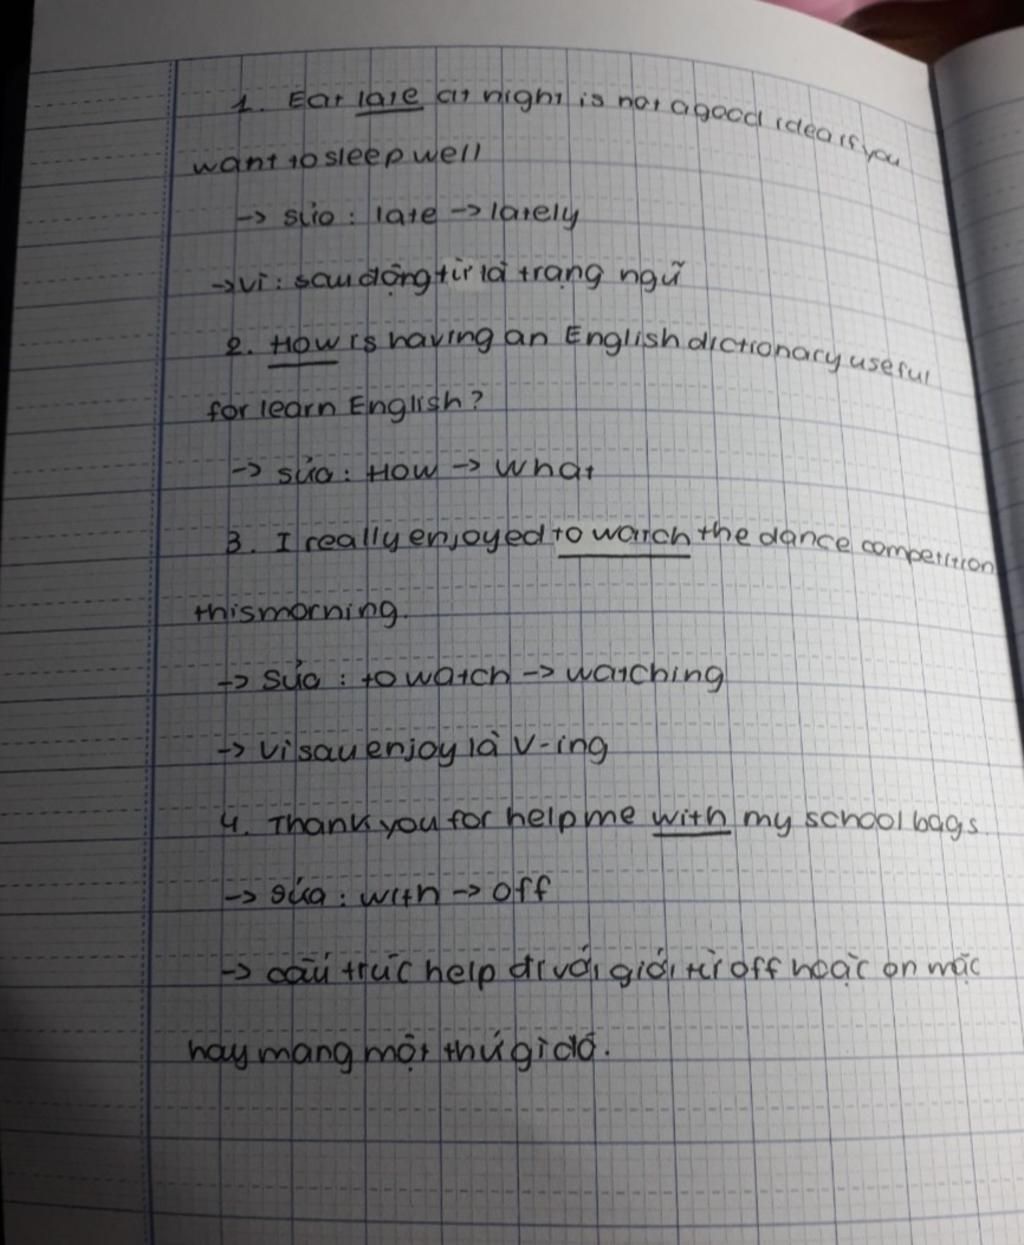 1. Eat late at night is not a good idea if you
want to sleep well
-> sửa : late -> lately
-> vì : sau động từ là trạng ngữ
2. How is having an English dictionary useful
for learn English ?
-> sửa : How -> what
3. I really enjoyed to watch the dance competition
this morning.
-> sửa : to watch -> watching
-> vì sau enjoy là V-ing
4. Thank you for help me with my school bags
-> sửa : with -> off
-> cấu trúc help đi với giới từ off hoặc on mặc
hay mang một thứ gì đó.